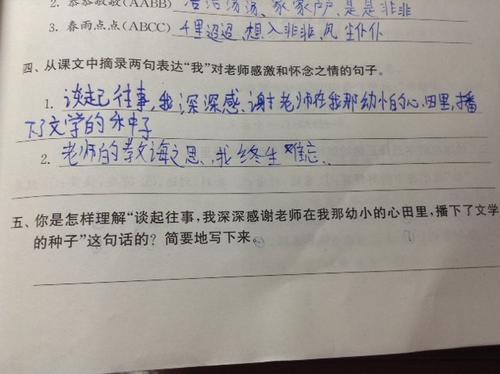 2. 恭恭敬敬(AABB) 清清清清、家家户户、是是非非
3. 春雨点点(ABCC) 千里迢迢、想入非非、风尘仆仆
四、从课文中摘录两句表达“我”对老师感激和怀念之情的句子。
1. 谈起往事,我深深感谢老师在我那幼小的心田里,播
下了文学的种子
2. 老师的教诲之恩、我终生难忘、
五、你是怎样理解“谈起往事,我深深感谢老师在我那幼小的心田里,播下了文学
的种子”这句话的?简要地写下来。